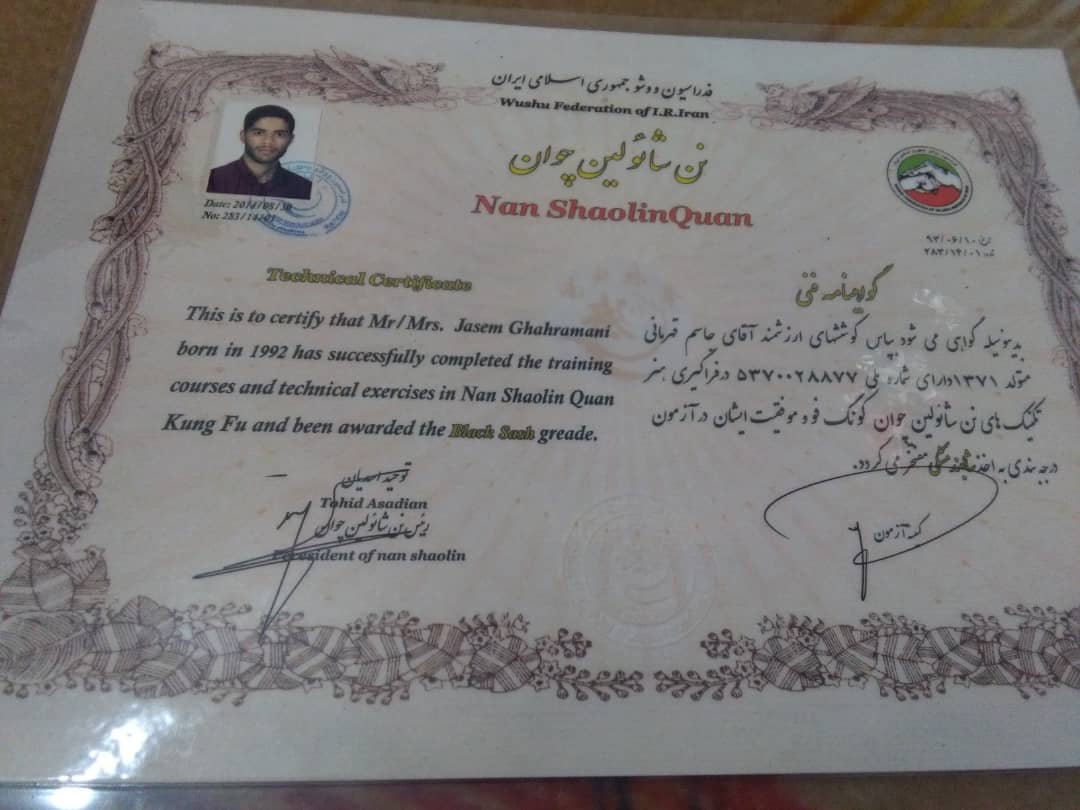 فدراسیون ووشو جمهوری اسلامی ایران
Wushu Federation of I.R.Iran
نن شائولین چوان
Nan ShaolinQuan
Date: 2014/08/30
No: 283/14/01
تاریخ: ۹۳/۰۶/۱۰
۲۸۳/۱۴/۰۱
Technical Certificate
This is to certify that Mr/Mrs. Jasem Ghahramani
born in 1992 has successfully completed the training
courses and technical exercises in Nan Shaolin Quan
Kung Fu and been awarded the Black Sash greade.
گواهینامه فنی
بدینوسیله گواهی می شود بپاس کوششهای ارزشمند آقای جاسم قهرمانی
متولد ۱۳۷۱ دارای شماره ملی ۵۳۷۰۰۲۸۸۷۷ در فراگیری هنر
تکنیک های نن شائولین چوان کونگ فو و موفقیت ایشان در آزمون
درجه بندی به اخذ مشکی مفتخر می گردد.
توحید اسدیان
Tohid Asadian
رئیس نن شائولین چوان
President of nan shaolin
کمیته آزمون